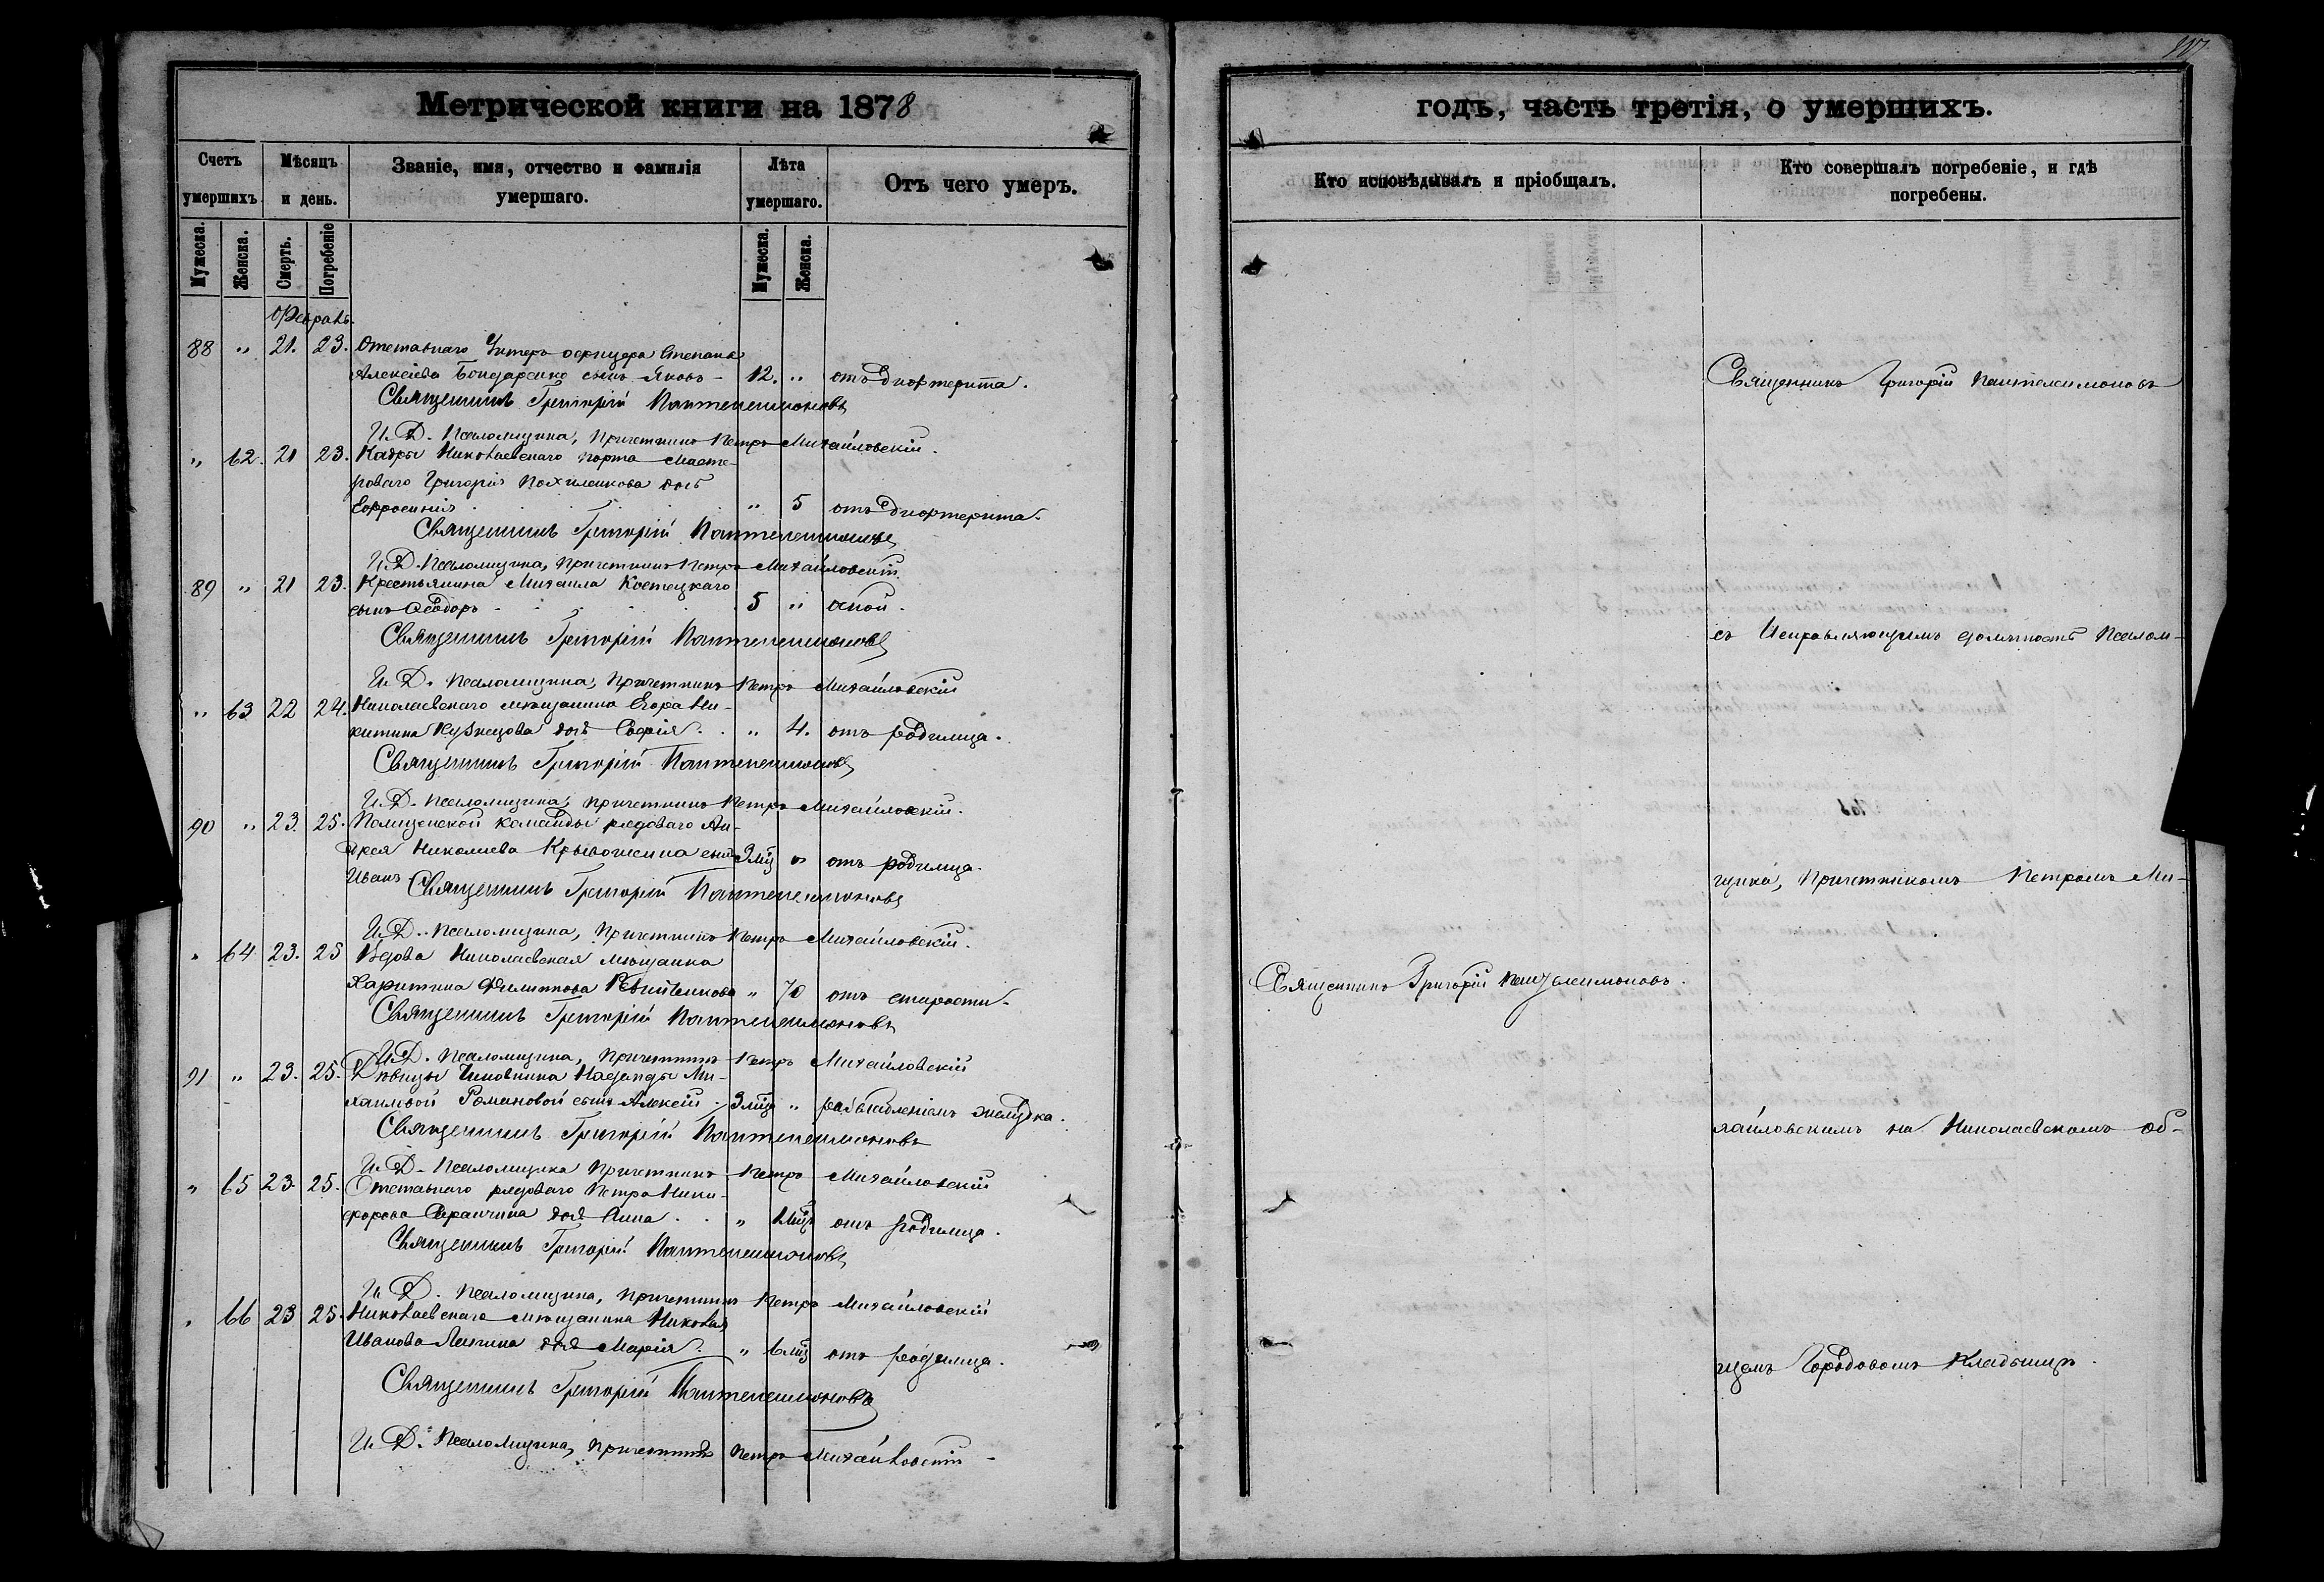 Метрической книги на 1878
Счетъ умершихъ
Мѣсяцъ и день.
Званіе, имя, отчество и фамилія умершаго.
Лѣта умершаго.
Отъ чего умеръ.
Мужеска.
Женска.
Смерть.
Погребеніе
Мужеска.
Женска.
Февраль.
88 " 21. 23. Отставнаго Унтеръ офицера Степана
Алексѣева Бондаренко сынъ Яковъ - 12. " отъ дифтерита.
Священникъ Григорій Пантелеимоновъ
И. Д. Псаломщика, Причетникъ Петръ Михайловскій.
" 62. 21 23. Кадры Николаевскаго порта Масте-
роваго Григорія дочь
Евфросинія " 5 отъ дифтерита.
Священникъ Григорій Пантелеимоновъ
И. Д. Псаломщика, Причетникъ Петръ Михайловскій.
89 " 21 23. Крестьянина Михаила Костецкаго
сынъ Ѳеодоръ - 5 " оспой.
Священникъ Григорій Пантелеимоновъ
И. Д. Псаломщика, Причетникъ Петръ Михайловскій
" 63 22 24. Николаевскаго мѣщанина Егора Ни-
китина Кузнецова дочь Софія. " 4. отъ родимца.
Священникъ Григорій Пантелеимоновъ
И. Д. Псаломщика, Причетникъ Петръ Михайловскій.
90 " 23. 25. Полицейской команды рядоваго Ан-
дрея Николаева сынъ 3 мѣс " отъ родимца.
Иванъ
Священникъ Григорій Пантелеимоновъ
И. Д. Псаломщика, Причетникъ Петръ Михайловскій.
" 64 23. 25 Вдова Николаевская мѣщанка
Харитина Филиппова " 70 отъ старости.
Священникъ Григорій Пантелеимоновъ
И. Д. Псаломщика, Причетникъ Петръ Михайловскій
91 " 23. 25. Дѣвицы Чиновника Надежды Ми-
хайловой Романовой сынъ Алексій. 3 мѣс " разслабленіемъ желудка.
Священникъ Григорій Пантелеимоновъ
И. Д. Псаломщика Причетникъ Петръ Михайловскій
" 65 23 25. Отставнаго рядоваго Петра Ники-
форова дочь Анна. " мѣс отъ родимца.
Священникъ Григорій Пантелеимоновъ
И. Д. Псаломщика, Причетникъ Петръ Михайловскій
" 66 23 25. Николаевскаго мѣщанина Николая
Иванова дочь Марія. " 6 мѣс отъ родимца.
Священникъ Григорій Пантелеимоновъ
И. Д. Псаломщика, Причетникъ Петръ Михайловскій -
годъ, часть третія, о умершихъ.
Кто исповѣдывалъ и пріобщалъ.
Кто совершалъ погребеніе, и гдѣ
погребены.
Священникъ Григорій Пантелеимоновъ
съ Исправляющимъ должность Псалом-
щика, Причетникомъ Петромъ Ми-
Священникъ Григорій Пантелеимоновъ.
хайловскимъ на Николаевскомъ об-
щемъ Городовомъ Кладбищѣ.